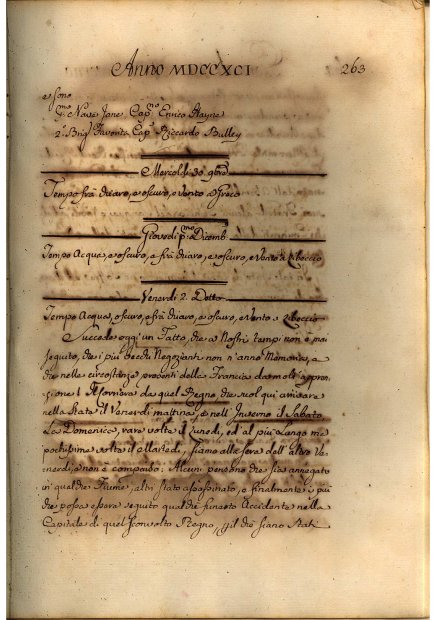 Anno MDCCXCI 263
e sono
P.mo Nave Jane Cap.no Enrico Hayne
2.o Brig Favorita Cap. Riccardo Bulley
Mercoldi 30. 9bre
Tempo frà chiaro, e oscuro, e vento a Greco
Giovedi p.mo Dicemb.
Tempo Acqua, e oscuro, e frà chiaro, e oscuro, e Vento a Libeccio
Venerdi 2. Detto
Tempo Acqua, oscuro, e frà chiaro, e oscuro, e Vento a Libeccio
Succede oggi un Fatto, che a Nostri tempi non è mai
seguito, che i più vecchi Negozianti non n'anno Memoria, e
che nelle circostanze presenti della Francia da molta appren
sione. Il Corriere da quel Regno che suol qui arrivare
nella State il Venerdi mattina, e nell' Inverno il Sabato
La Domenica, rare volte il Lunedi, ed al più Lungo ma
pochissime volte il Martedi, siamo alla sera dell' altro Ve
nerdi, e non è comparso: Alcuni pensono che sia annegato
in qualche Fiume, altri stato assassinato, e finalmente i più
che possa essere seguito qualche funesto Accidente nella
Capitale di quel sconvolto Regno, che siano Stati